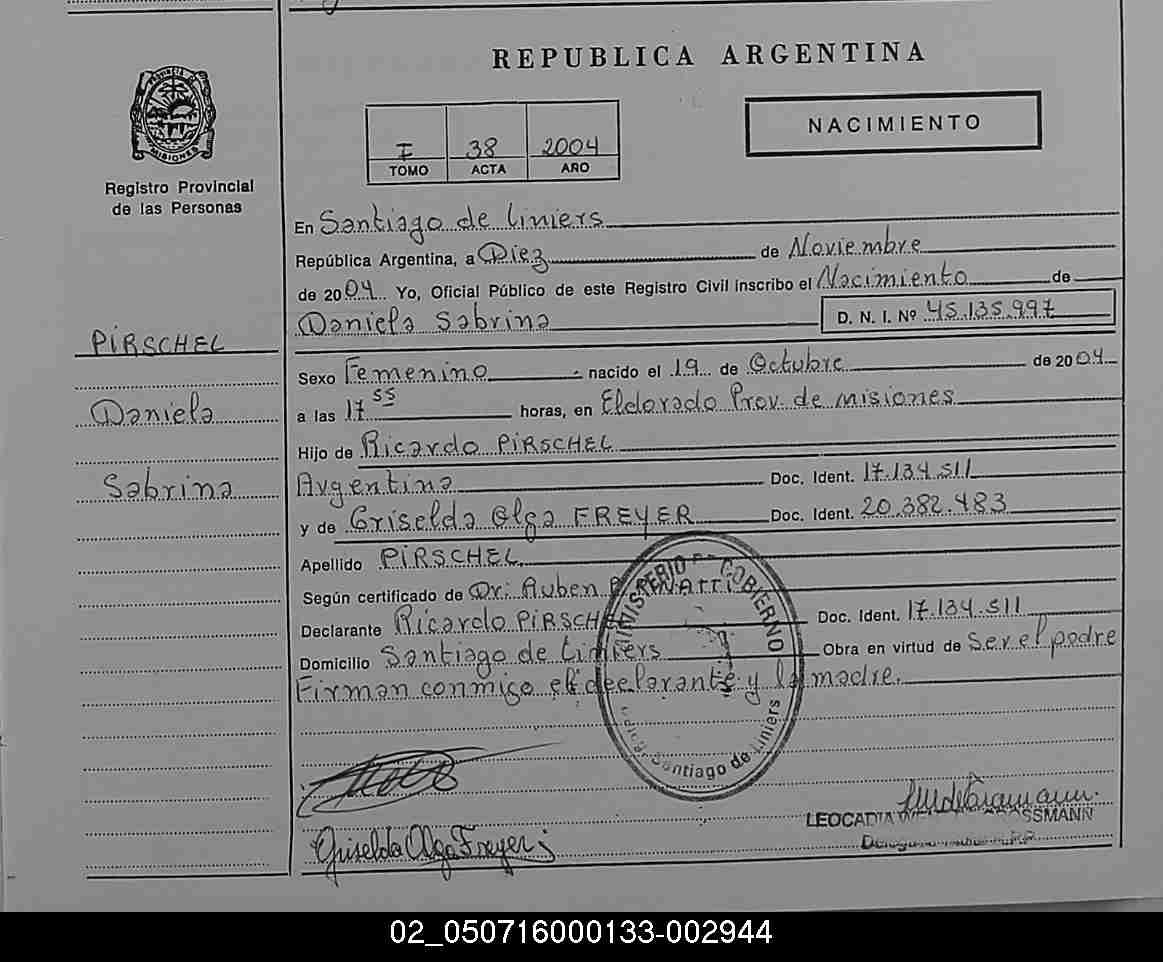 REPUBLICA ARGENTINA
PROVINCIA DE
MISIONES
Registro Provincial
de las Personas
NACIMIENTO
I 38 2004
TOMO ACTA AÑO
En Santiago de Liniers
República Argentina, a Diez de Noviembre
de 2004 Yo, Oficial Público de este Registro Civil inscribo el Nacimiento de
Daniela Sabrina D. N. I. Nº 45.135.997
PIRSCHEL
Daniela
Sabrina
Sexo Femenino - nacido el 19 de Octubre de 2004
a las 17 55 horas, en Eldorado Prov. de Misiones
Hijo de Ricardo PIRSCHEL
Argentina Doc. Ident. 17.134.511
y de Griselda Olga FREYER Doc. Ident. 20.382.483
Apellido PIRSCHEL
Según certificado de Dr. Ruben
Declarante Ricardo PIRSCHEL Doc. Ident. 17.134.511
Domicilio Santiago de Liniers Obra en virtud de Ser el padre
Firman conmigo el declarante y la madre.
MINISTERIO DE GOBIERNO
Santiago de Liniers
Griselda Olga Freyer
LEOCADIA
02_050716000133-002944